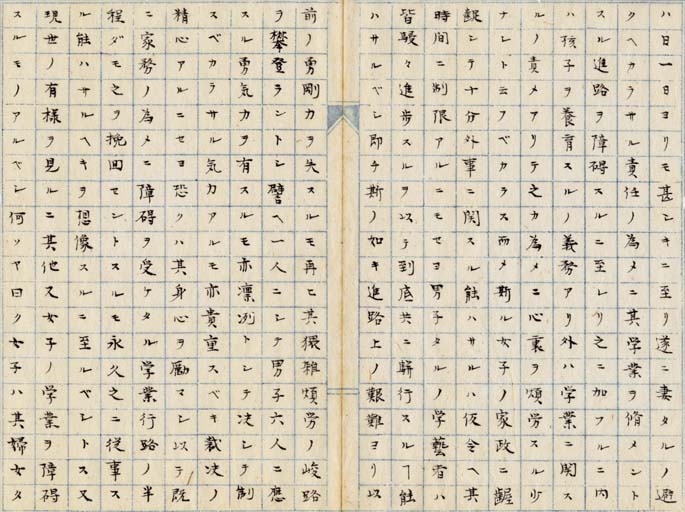 ハ日一日ヨリモ甚シキニ至リ遂ニ妻タルノ避
クヘカラサル責任ノ為メニ其学業ヲ脩メント
スル進路ヲ障碍スルニ至レリ之ニ加フルニ内
ハ孩子ヲ養育スルノ義務アリ外ハ学業ニ関ス
ルノ責メアリテ之カ為メニ心裏ヲ煩労スル少
ナシト云フベカラス而メ斯ル女子ノ家政ニ齷
齪シテ十分外事ニ関スル能ハサルハ仮令ヘ其
時間ニ制限アルニモセヨ男子タルノ学藝者ハ
皆駸々進歩スルヲ以テ到底共ニ駢行スルヿ能
ハサルベシ即チ斯ノ如キ進路上ノ艱難ヨリ以
前ノ勇剛力ヲ失スルモ再ヒ其猥雑煩労ノ峻路
ヲ攀登ラントシ譬ヘ一人ニシテ男子六人ニ應
スル勇気力ヲ有スルモ亦凛冽トシテ决シテ制
スベカラサル気力アルモ亦貴重スベキ裁决ノ
精心アルニセヨ恐クハ其身心ヲ励マシ以テ既
ニ家務ノ為メニ障碍ヲ受ケタル学業行路ノ半
程ダモ之ヲ挽回セントスルモ永久之ニ従事ス
ル能ハサルヘキヲ想像スルニ至ルベシトス又
現世ノ有様ヲ見ルニ其他又女子ノ学業ヲ障碍
スルモノアルベシ何ソヤ曰ク女子ハ其婦女タ